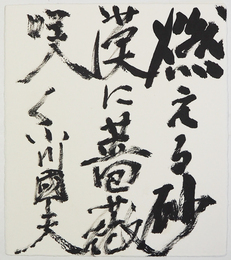 燃える砂
漠に薔薇
咲く 小川國夫